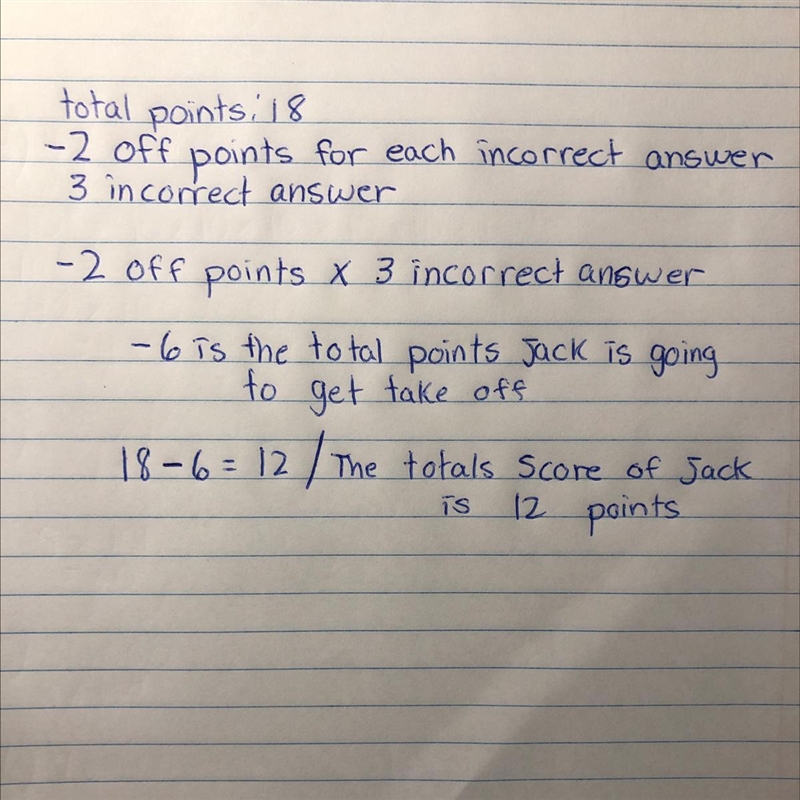 total points: 18
-2 off points for each incorrect answer
3 incorrect answer
-2 off points x 3 incorrect answer
-6 is the total points Jack is going
to get take off
18-6=12/The totals score of Jack
is 12 points